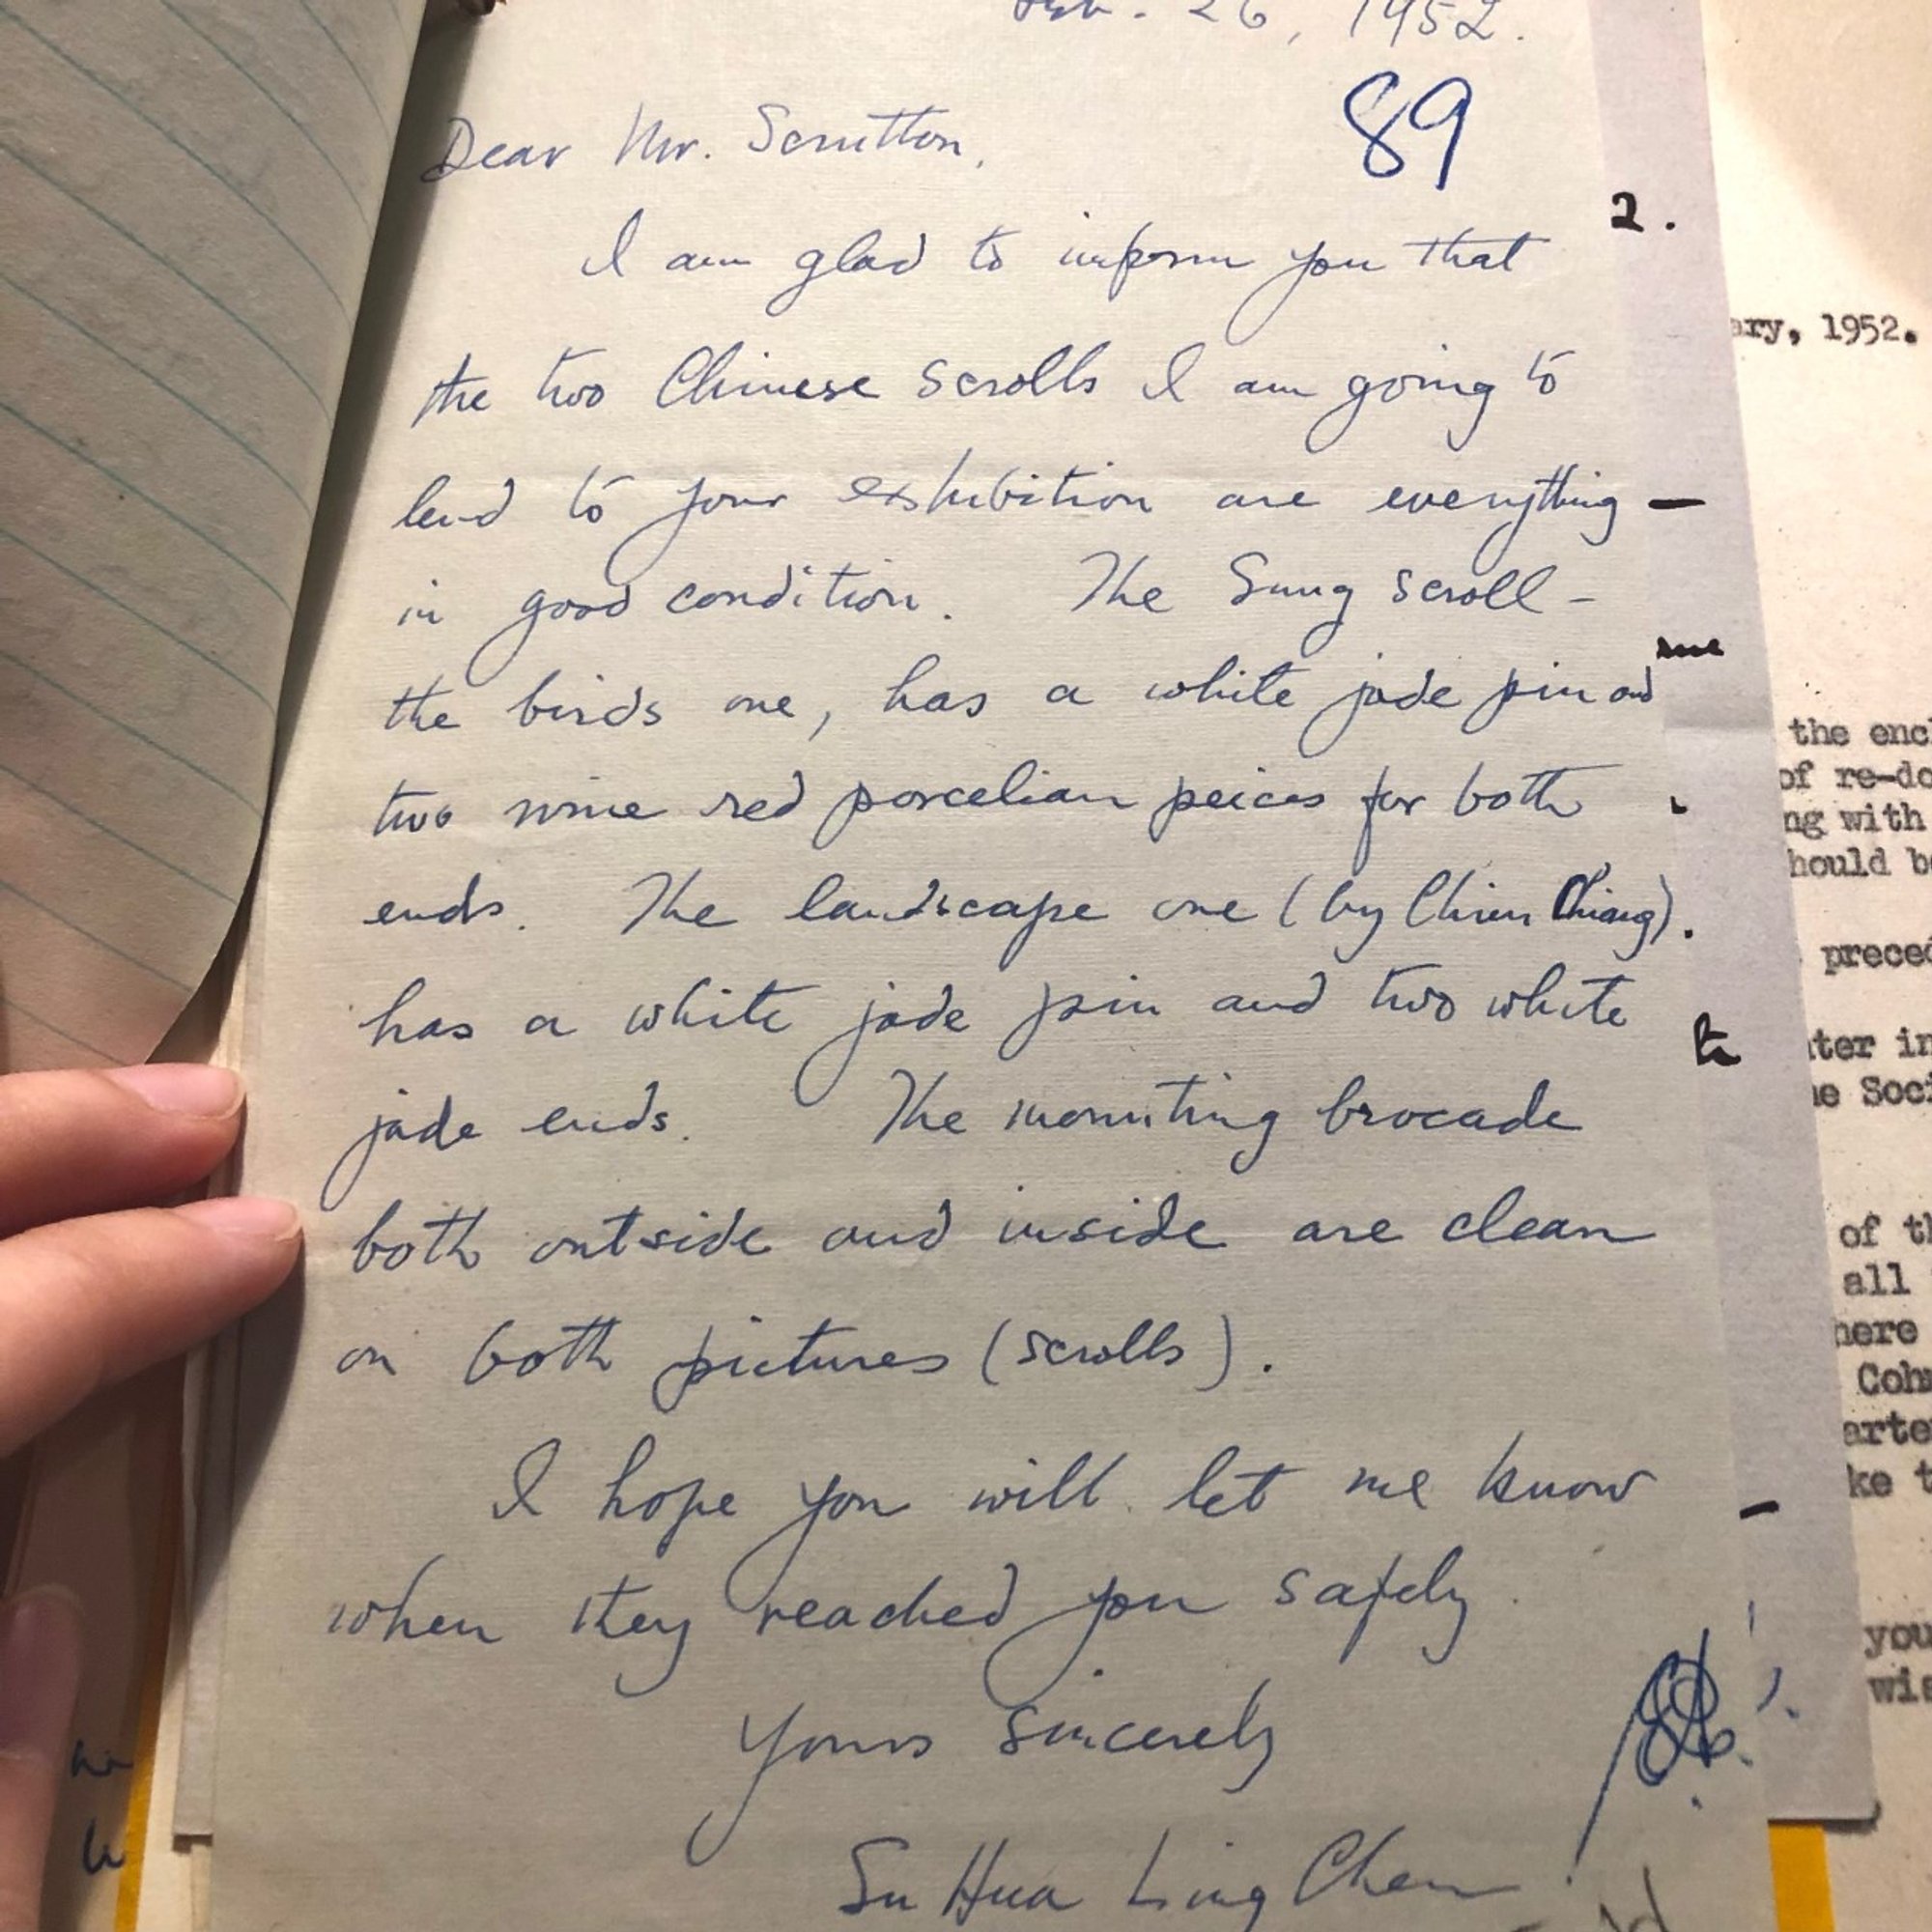 Feb. 26, 1952.
89
Dear Mr. Scrutton,
I am glad to inform you that
the two Chinese scrolls I am going to
lend to your exhibition are everything
in good condition. The Sung scroll -
the birds one, has a white jade pin and
two wine red porcelian peices for both
ends. The landscape one (by Chien Chiang)
has a white jade pin and two white
jade ends. The mounting brocade
both outside and inside are clean
on both pictures (scrolls).
I hope you will let me know
when they reached you safely.
Yours sincerely
Su Hua Ling Chen
2.
me
to
ary, 1952.
the enc
of re-do
ng with
hould be
preced
ter in
e Soci
of th
all
here
Coh
arte
ke t
you
wis